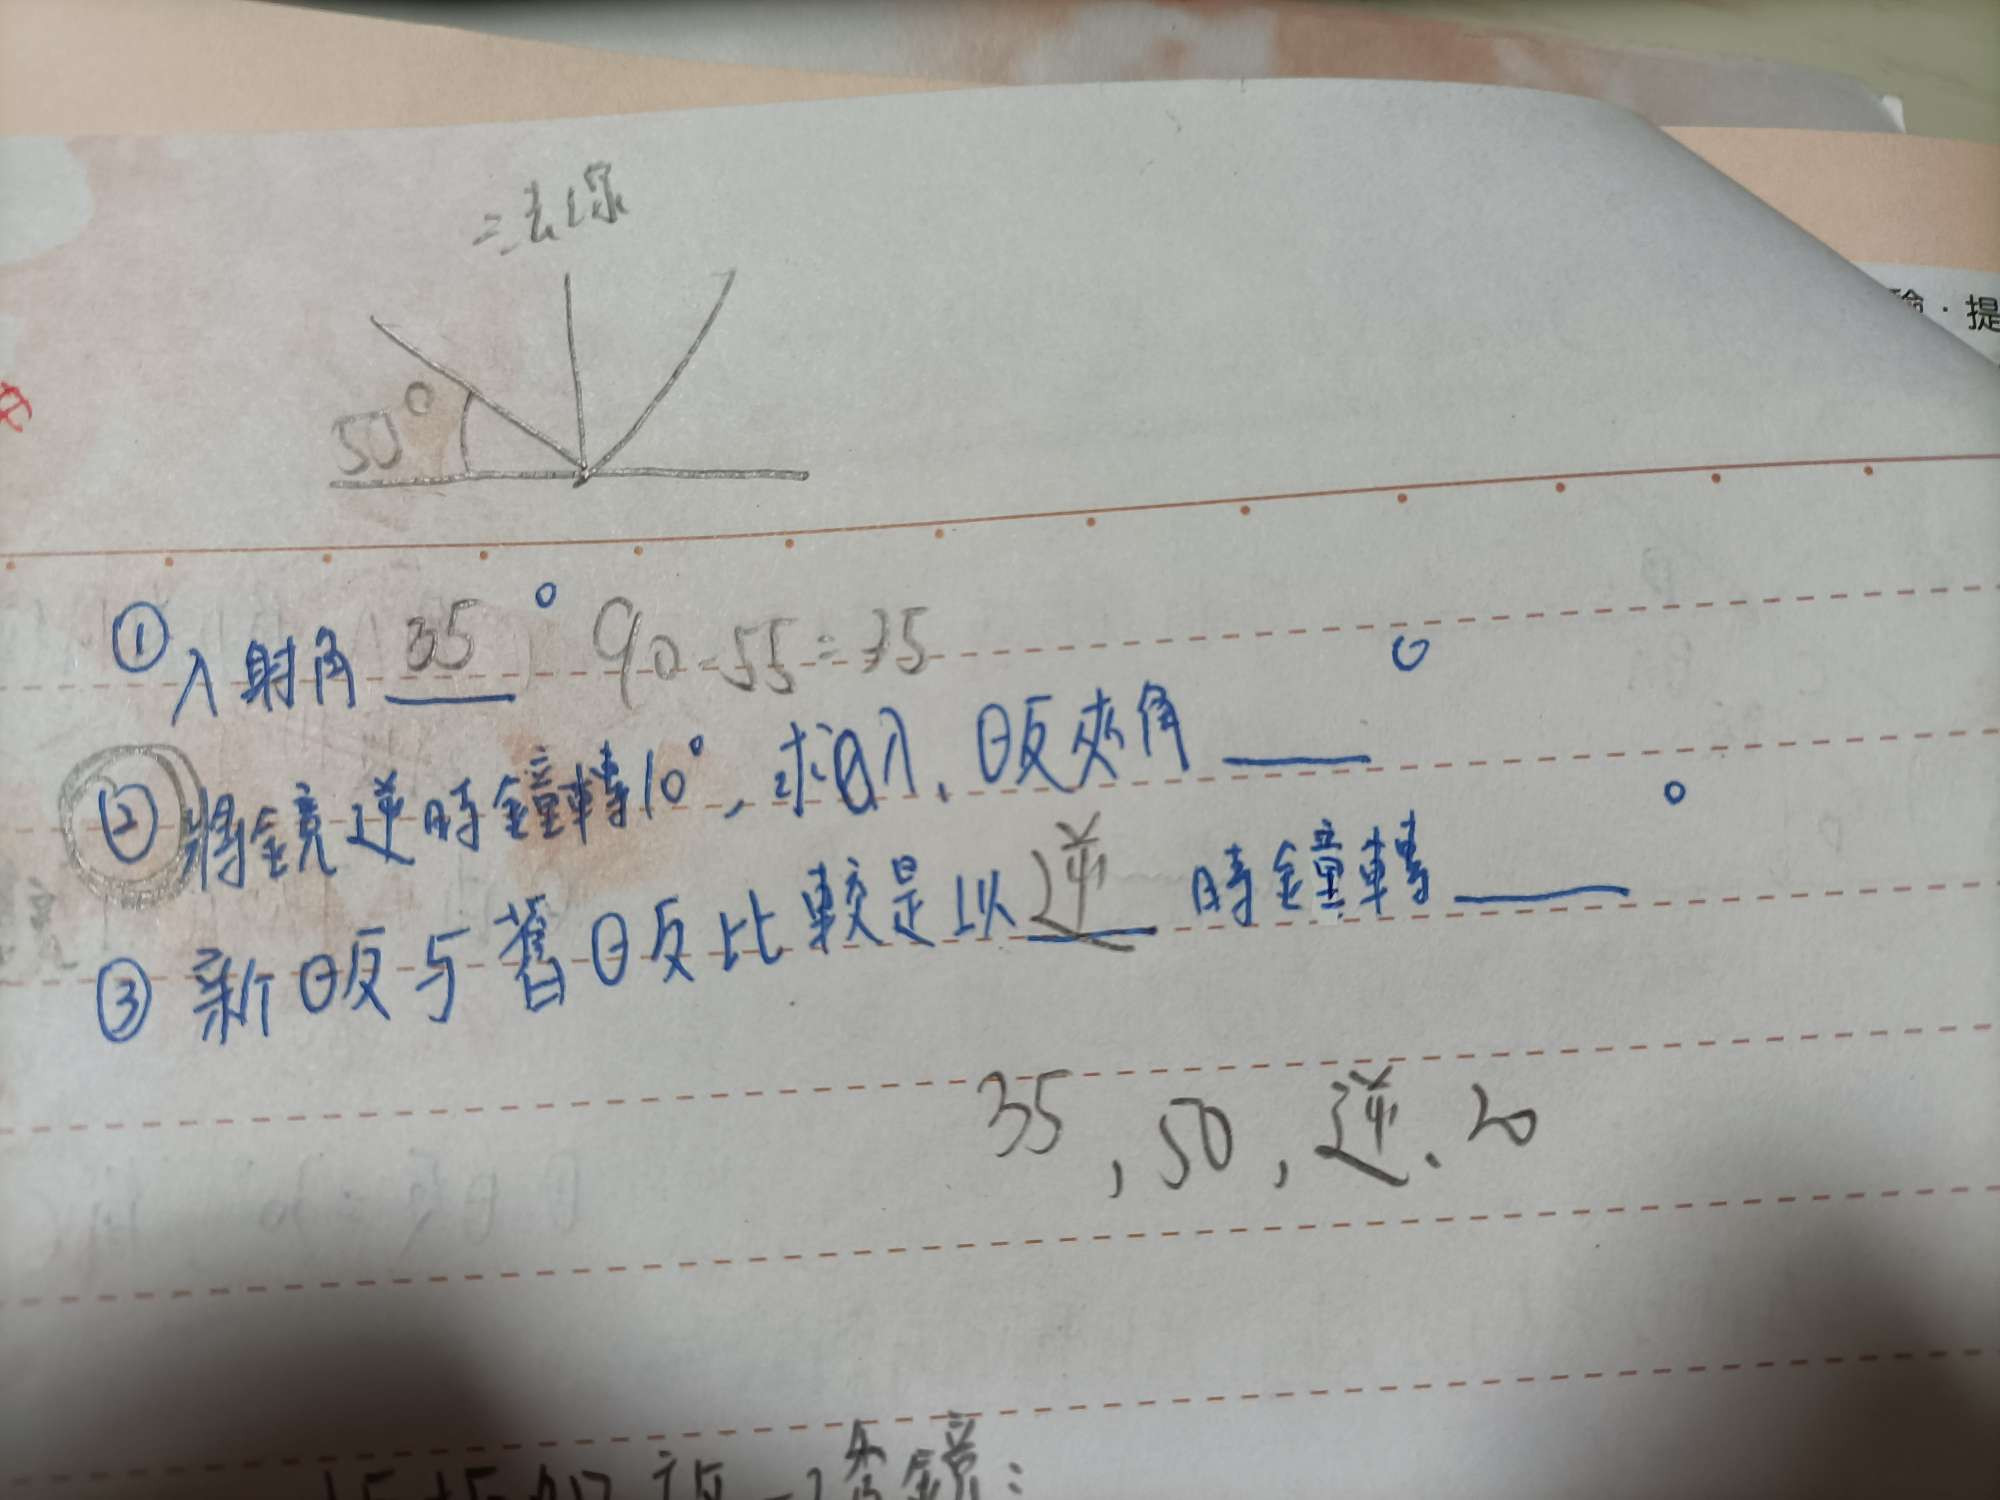 =法線
50°
① 入射角 35 ° 90-55=35
② 將鏡逆時鐘轉10°,求∠入、∠反夾角 °
③ 新∠反与舊∠反比較是以逆時鐘轉 °
35,50,逆.20
鏡: